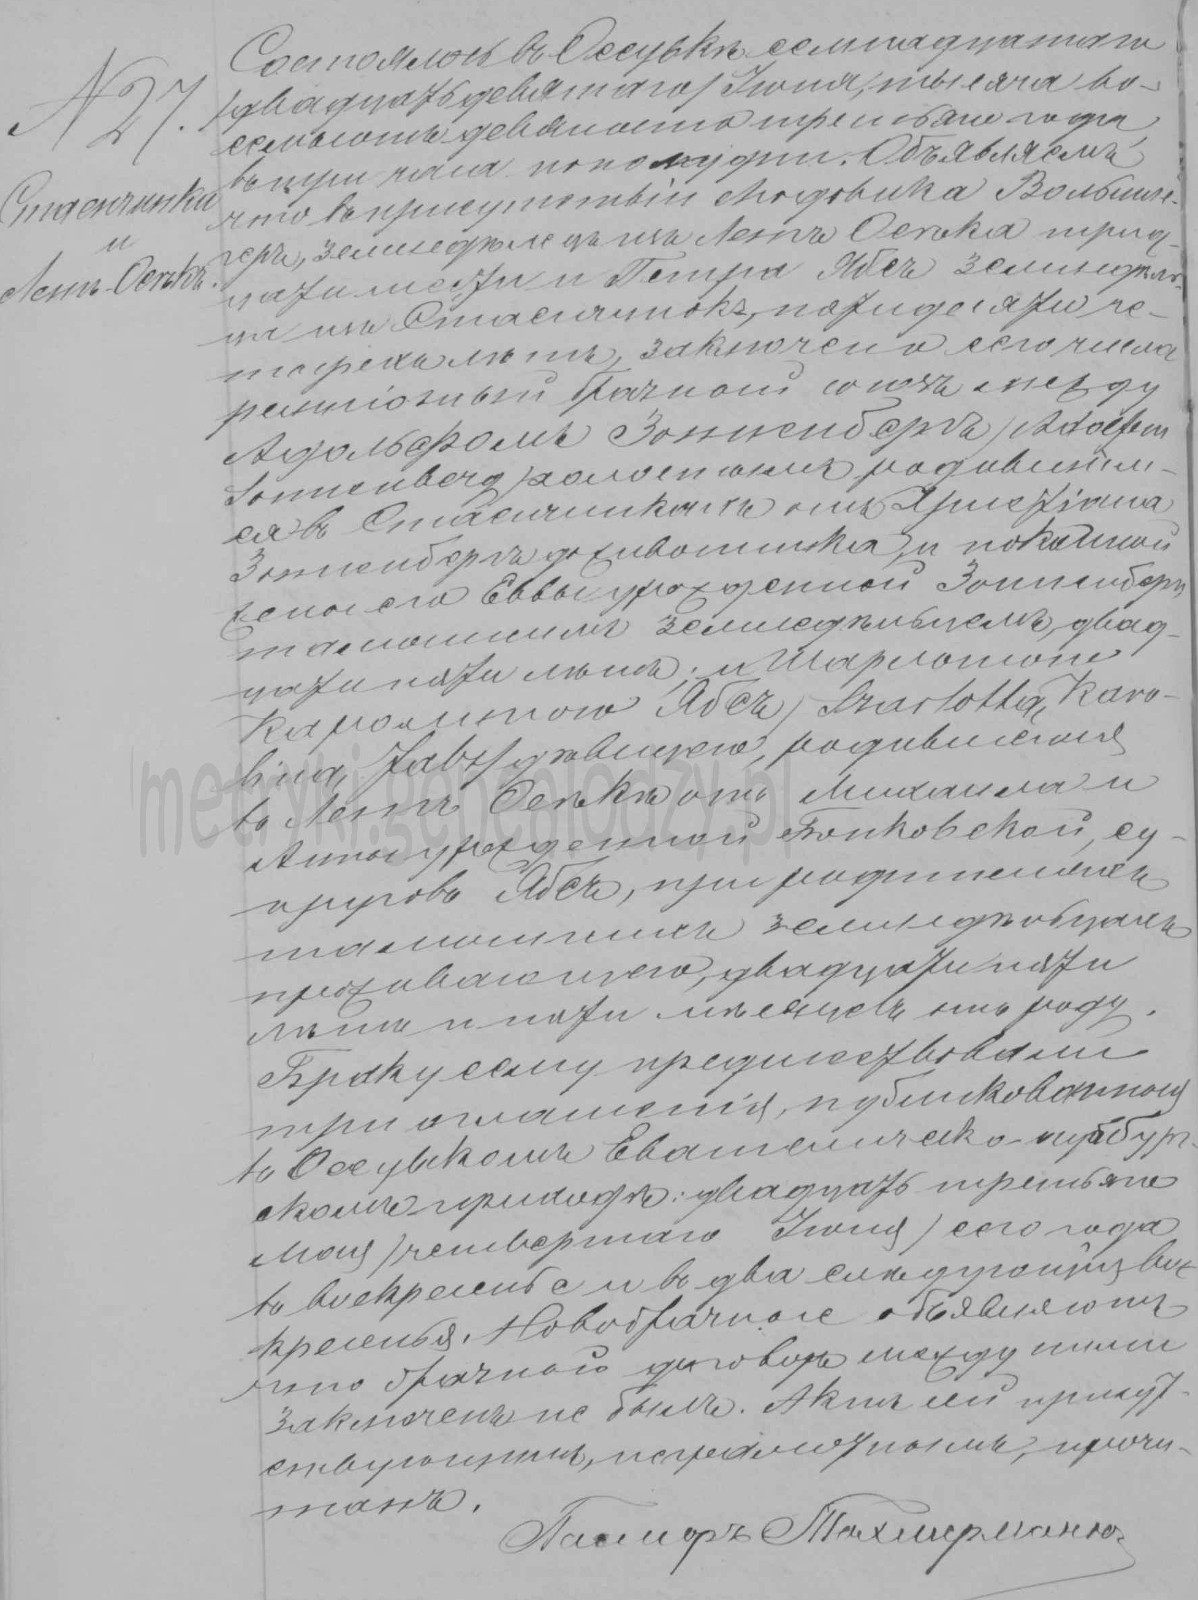 N 27.
Стасичинка
и
Ленъ-Осѣкъ.
Состоялось въ Оссувкѣ семнадцатаго
/двадцать девятаго/ Іюня, тысяча во-
семьсотъ девяносто третьяго года,
въ три часа пополудни. Объявляемъ
что въ присутствіи Людовика Вольшле-
геръ, земледѣлецъ изъ Ленъ Осѣка трид-
цати лѣтъ и Петра Ябсъ земледѣль-
ца изъ Стасичинокъ, пятидесяти че-
тырехъ лѣтъ, заключенъ сего числа
религіозный брачный союзъ между
Адольфомъ Зонненбергъ /Adolfem
Sonnenberg/ холостымъ, родившим-
ся въ Стасичинкахъ отъ Христіана
Зоненбергъ доживотника, и покойной
жены его Еввы урожденной Зонненбергъ
тамошнимъ земледѣльцемъ, двад-
цати пяти лѣтъ; и Шарлотою
Каролиною Ябсъ /Szarlottą, Karo-
liną Jabs/ дѣвицею, родившеюся
въ Ленъ Осѣкѣ отъ Михаила и
Анны урожденной Бонковской, су-
пруговъ Ябсъ, при родителяхъ
тамошнихъ земледѣльцахъ
проживающею, двадцати пяти
лѣтъ и пяти мѣсяцевъ отъ роду.
Браку сему предшествовали
три оглашенія, публикованныя
въ Оссувкомъ Евангелическо-аугсбург-
скомъ приходѣ: двадцать третьяго
Мая /четвертаго Іюня/ сего года
въ воскресенье и въ два слѣдующія вос-
кресенья. Новобрачные объявляютъ
что брачный договоръ между ними
заключенъ не былъ. Актъ сей присут-
ствующимъ, неграмотнымъ, прочи-
танъ.
Пасторъ
metryki.genealodzy.pl